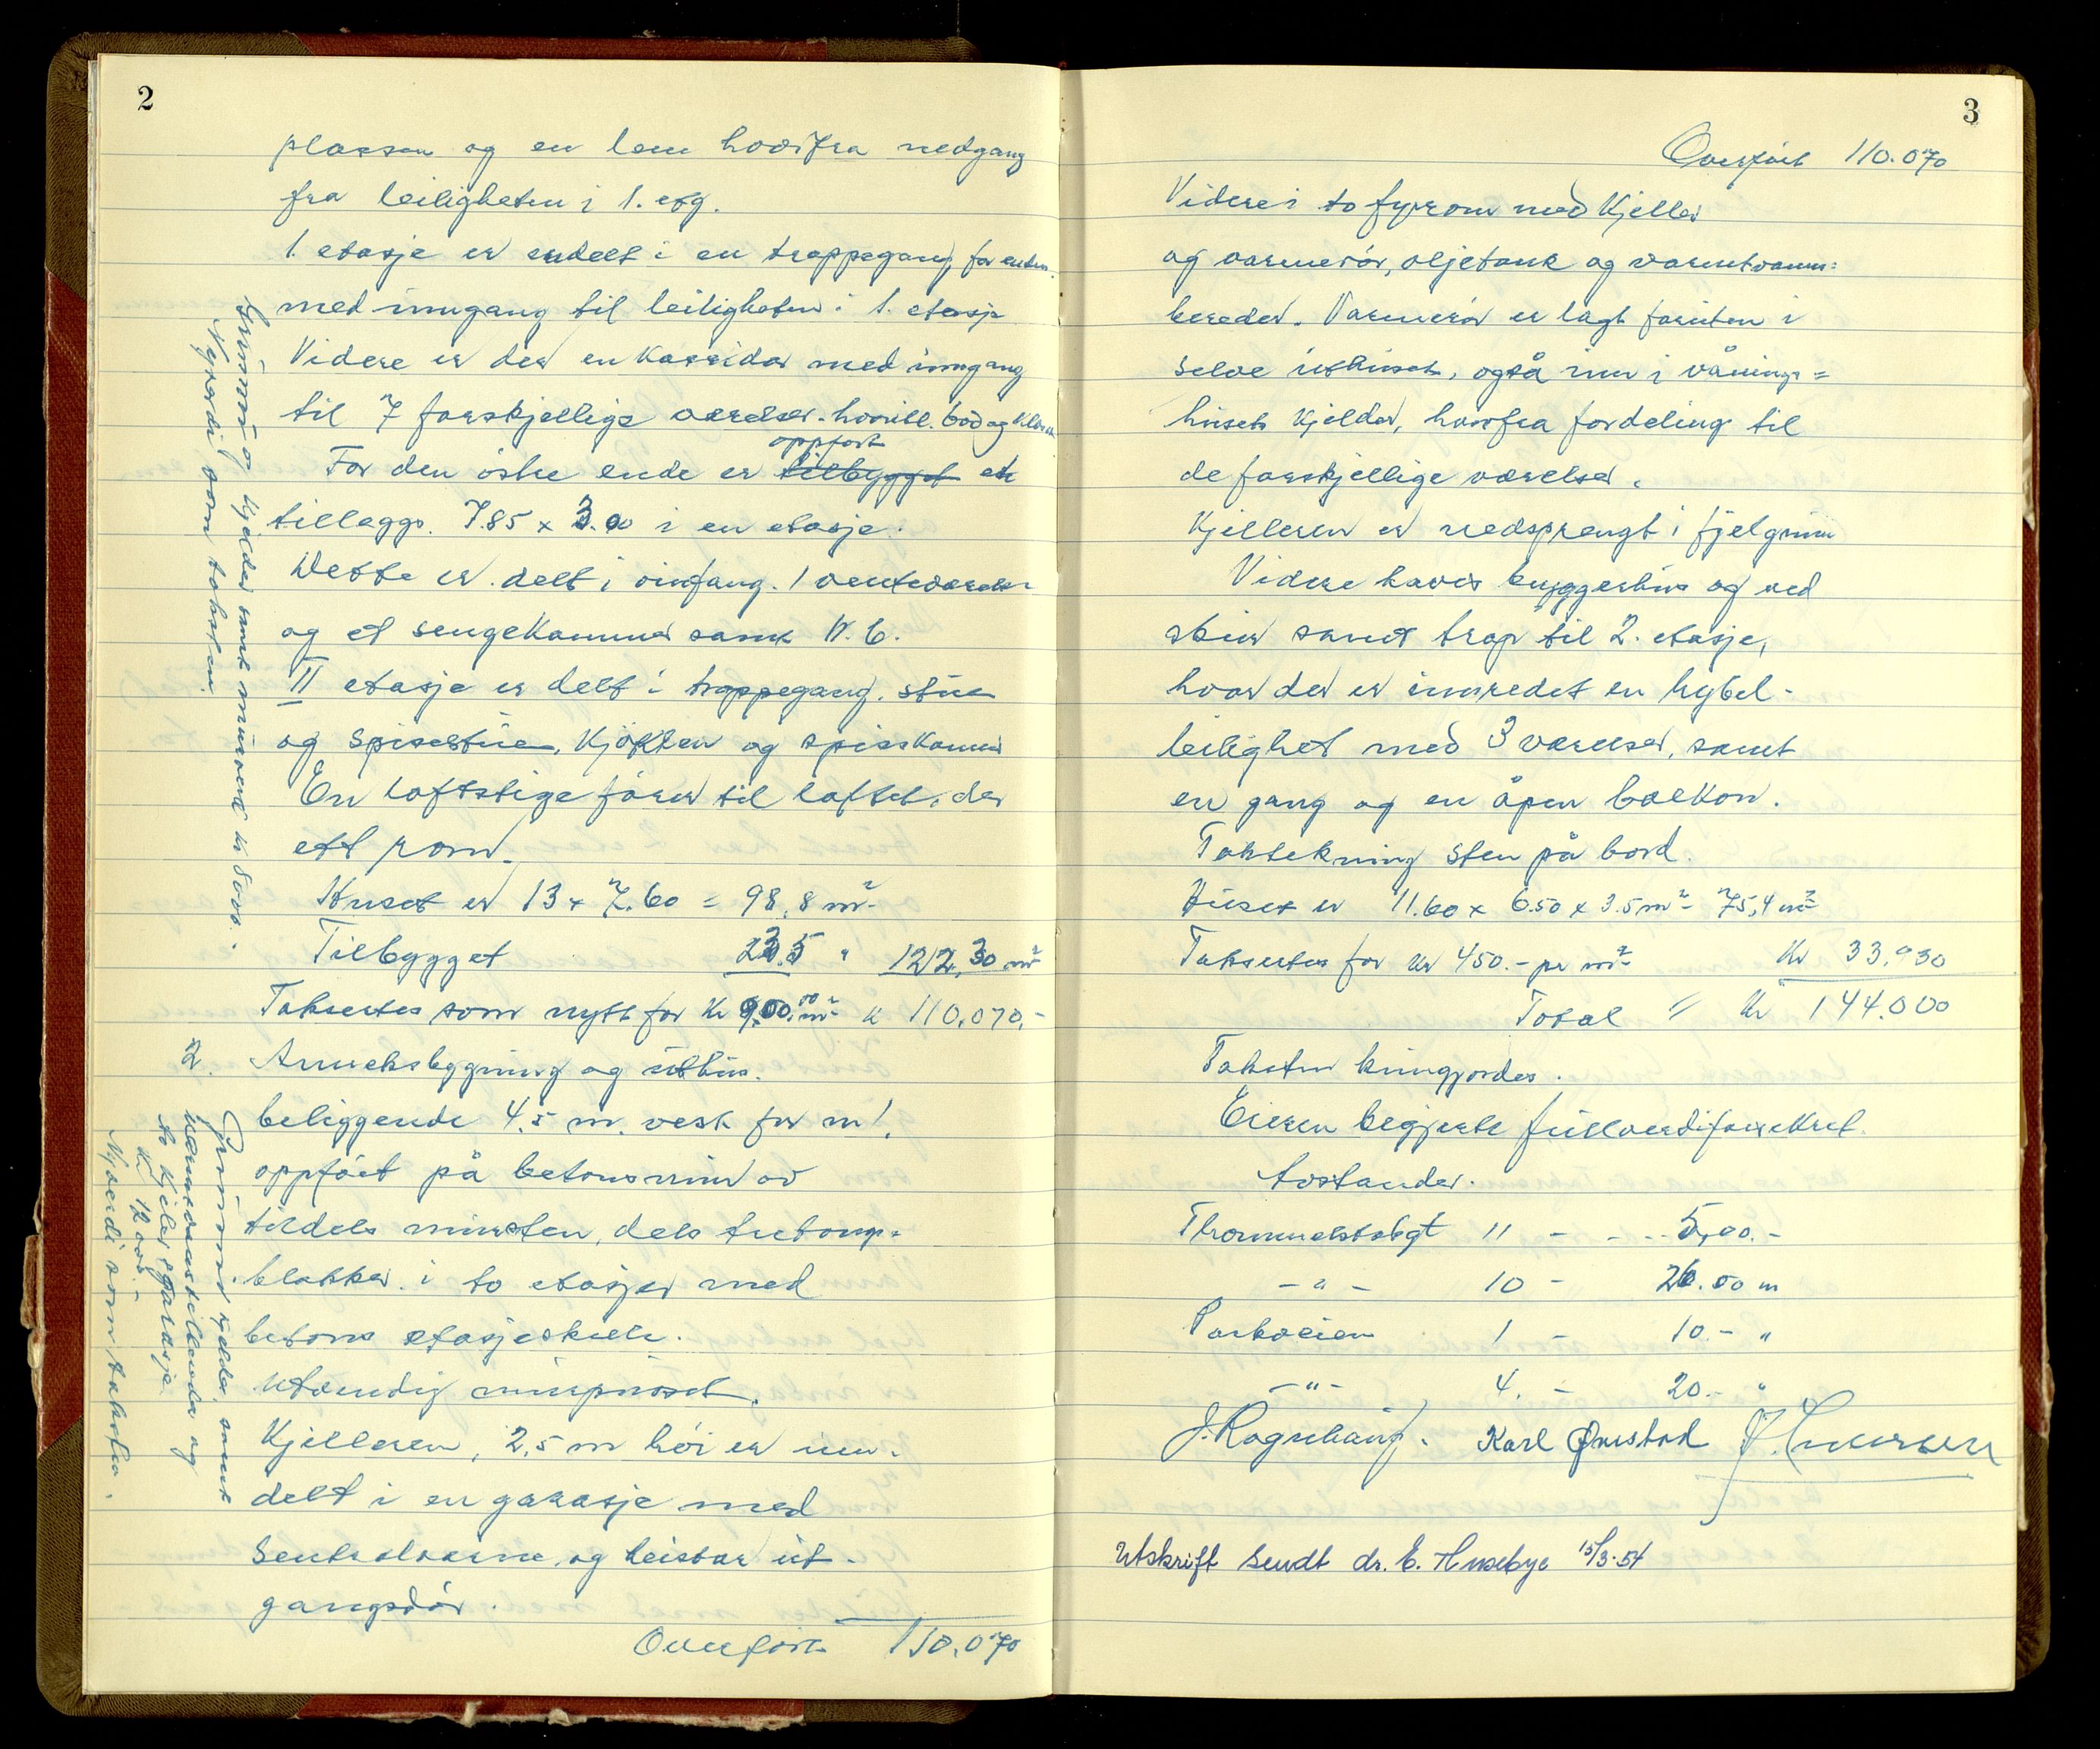 2
plassen og en lem hvorfra nedgang
fra leiligheten i 1. etg.
1. etasje er indelt i en trappegang, for enden
med inngang til leiligheten i 1. etasje
Videre er der en Korridor med inngang
til 7 forskjellige værelser. hvoribl. bod og
oppført
For den östre ende er tilbygget et
tilleggs. 7.85 x 3.00 i en etasje.
Dette er delt i vinfang. 1 venteværelse
og et sengekammer samt W.C.
II etasje er delt i trappegang, stue
og spisestue, Kjökken og spisskammer
En loftstige förer til loftet, der
ett rom.
Huset er 13 x 7.60 = 98,8 m²
Tilbygget 23.5 " 122,30 m²
Taksertes som nytt for Kr 900.00 m² K 110,070,-
2. Anneksbygning og uthus.
beliggende 4.5 m. vest for nr 1.
oppfört på betongmur av
tildels mursten, dels
blokker i to etasjer med
betong etasjeskille.
Utvendig murpusset.
Kjelleren, 2,5 m höi er inn-
delt i en garasje med
Sentralvarme og ut-
gangsdör.
Overfört 110.070
Grunnmur og kjelder samt murverk kr 8000.-
Nyverdi som taksten.
Grunnmur kjelder, samt
varmeanstillende og
to kjeler garasje
kr 12000.-
Nyverdi som taksten.
3
Overfört 110.070
Videre i to fyrrom med Kjeller
og varmerör, oljetank og varmtvanns=
bereder. Varmerör er lagt foruten i
selve uthuset, også inn i vånings=
husets Kjelder, hvorfra fordeling til
de forskjellige værelser.
Kjelleren er nedsprengt i fjelgrunn
Videre haves bryggerhus og ved
skur samt trap til 2. etasje,
hvor der er innredet en hybel-
leilighet med 3 værelser, samt
en gang og en åpen balkon.
Taktekning sten på bord.
Huset er 11.60 x 6.50 x 3.5 m² 75,4 m²
Taksertes for Kr 450.- pr m² Kr 33,930
Total = Kr 144.000
Taksten kunngjordes.
Eieren begjerte fullverdiforsikret.
Avstander.
Thrommestadgt 11 - - - - 5,00.-
-"- 10 - 26.00 m
Parkveien 1 - 10.- "
-"- 4. - 20.- "
J. Ragnhaug. Karl Ørnstad
Utskrift sendt dr. E. Husebye 15/3-54